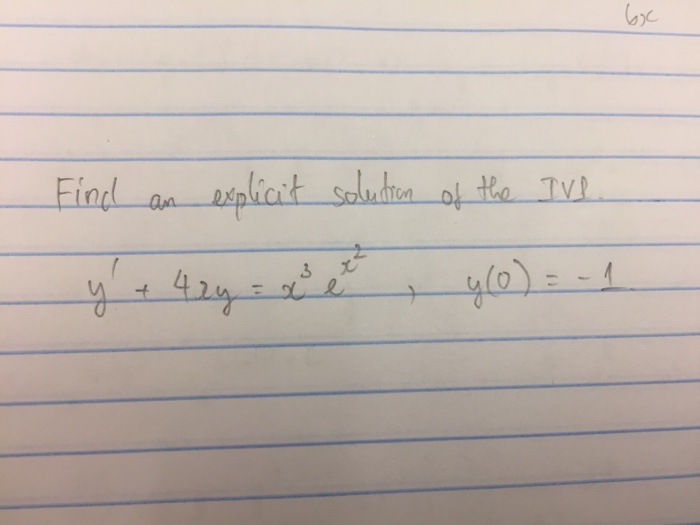 6x
Find an explicit solution of the IVP.
y' + 4xy = x³ e^x², y(0) = -1